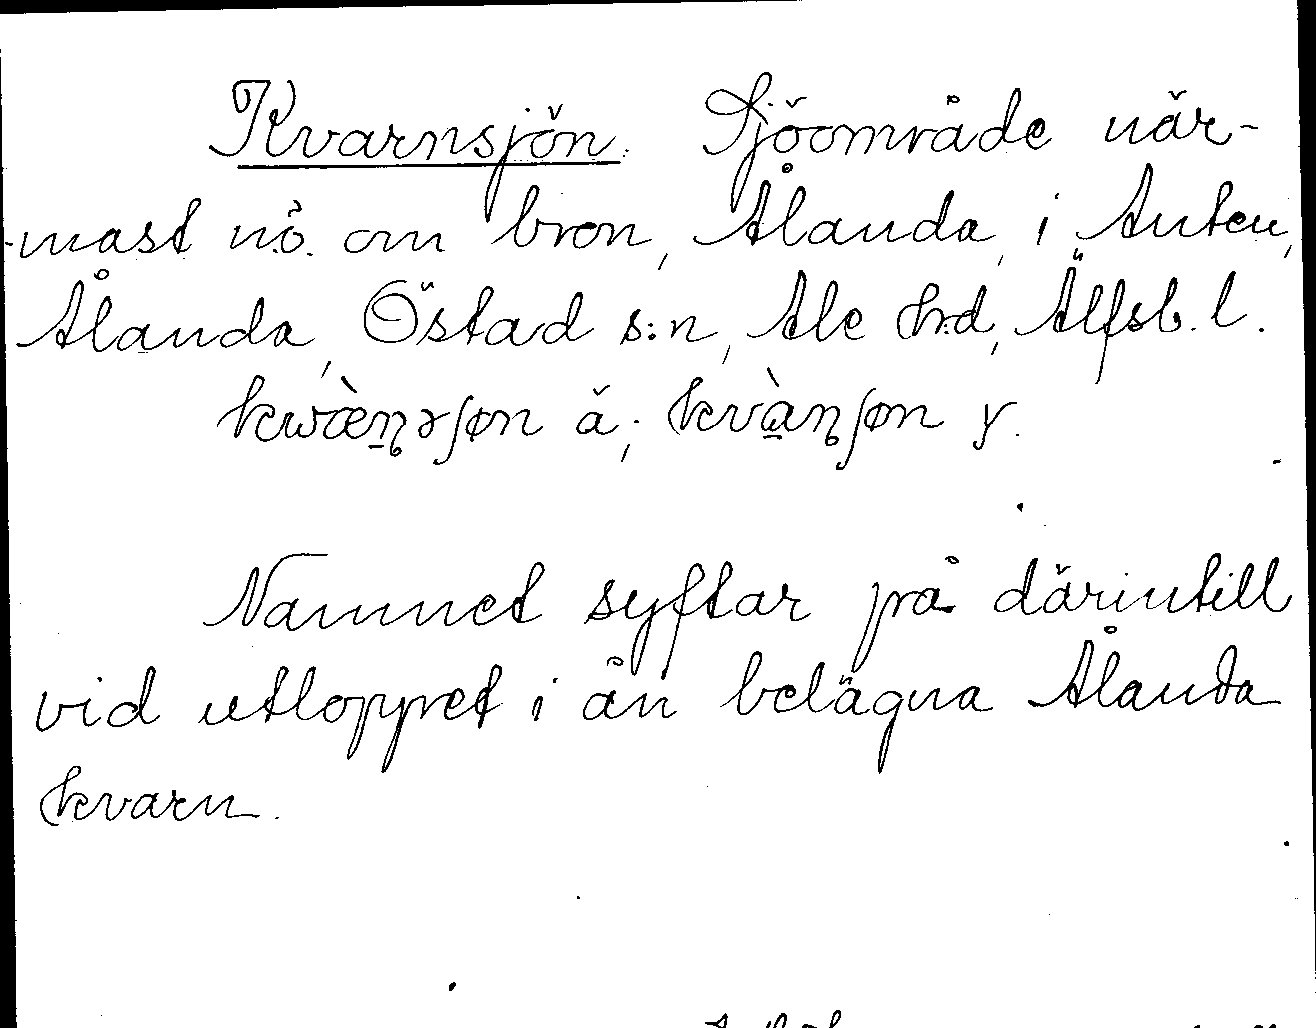 Kvarnsjön. Sjöområde när-
mast n.ö. om bron, Ålanda, i Anten,
Ålanda, Östad s:n, Ale h:d, Älfsb. l.
kwæ̀ṉ̣ərʃøn ä.; kvàṉʃøn y.
Namnet syftar på därintill
vid utloppet i ån belägna Ålanda
kvarn.